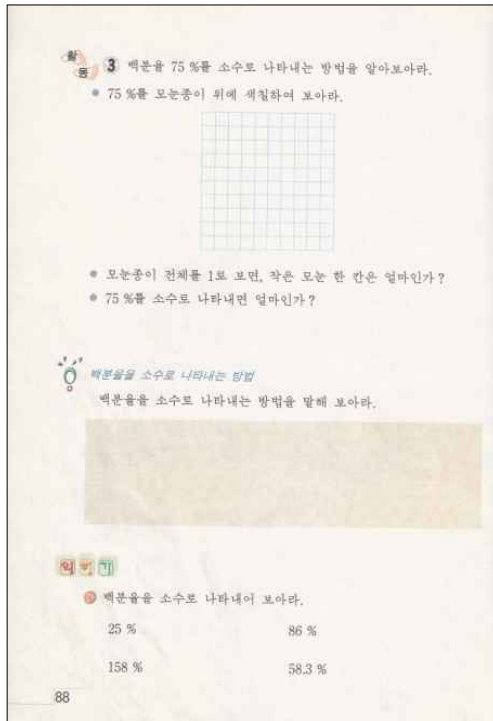 활동 3 백분율 75 %를 소수로 나타내는 방법을 알아보아라.
● 75 %를 모눈종이 위에 색칠하여 보아라.
● 모눈종이 전체를 1로 보면, 작은 모눈 한 칸은 얼마인가?
● 75 %를 소수로 나타내면 얼마인가?
백분율을 소수로 나타내는 방법
백분율을 소수로 나타내는 방법을 말해 보아라.
익히기
백분율을 소수로 나타내어 보아라.
25 % 86 %
158 % 58.3 %
88